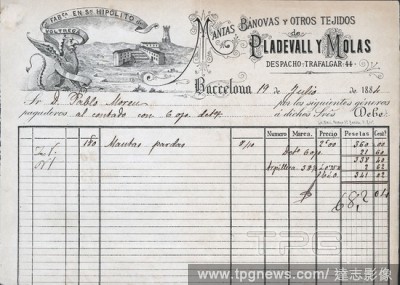 FABCA EN SN HIPOLITO
VOLTREGÁ
MANTAS BANOVAS Y OTROS TEJIDOS
de
PLADEVALL Y MOLAS
DESPACHO: TRAFALGAR: 44
Barcelona 19 de Julio de 1884
Sr. D. Pablo Moreu por los siguientes géneros
pagaderos al contado con 6 o/o á dichos Sres. Debe:
Numero Marca Precio Pesetas Cent.
180 Mantas pardas 8/10 2'00 360 00
6 o/o 21 60
338 40
Arpillera 2 62
341 02
TPG
www.tpgnews.com/ 達志影像